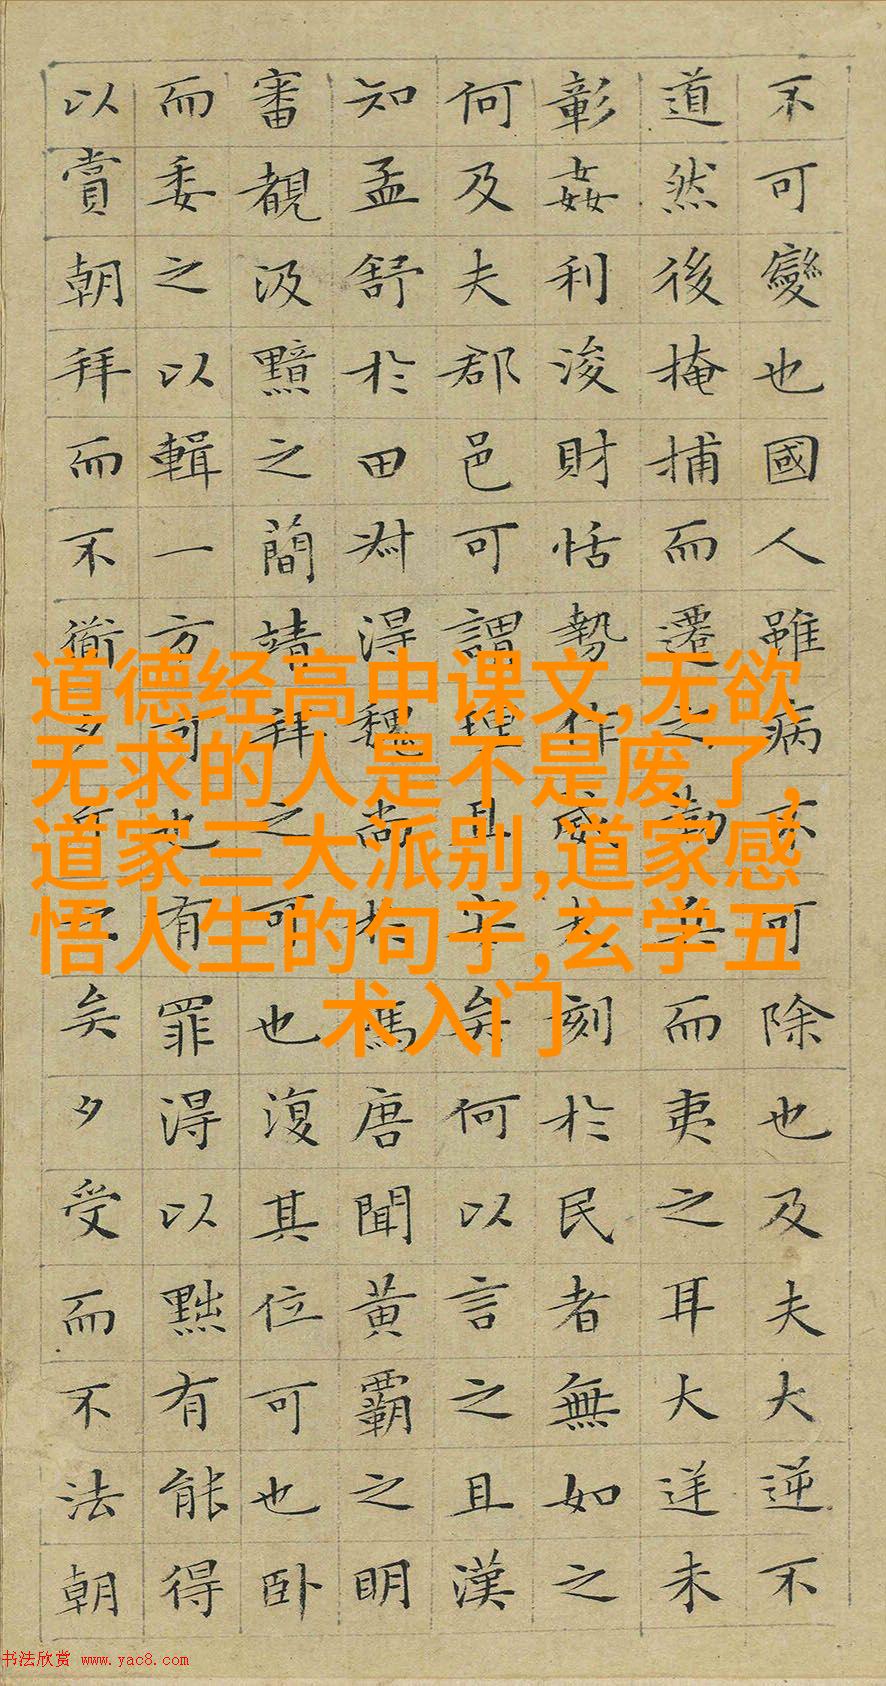 不可變也國人雖病不可除也及夫大逆不
道然後掩捕而遷之勒兵而夷之耳大逆未
彰姦利浚財恃勢作威大刻於民者無如之
何及夫郡邑可謂理且安矣何以言之且漢
知孟舒於田叔得魏尚於馮唐聞黃霸之明
審覩汲黯之簡靖拜之可也復其位可也卧
而委之以輯一方可也有罪得以黜有能得
以賞朝拜而不衜夕斥之矣夕受而不法朝
道德经高中课文,无欲
无求的人是不是废了,
道家三大派别,道家感
悟人生的句子,玄学五
术入门
书法欣赏 www.yac8.com